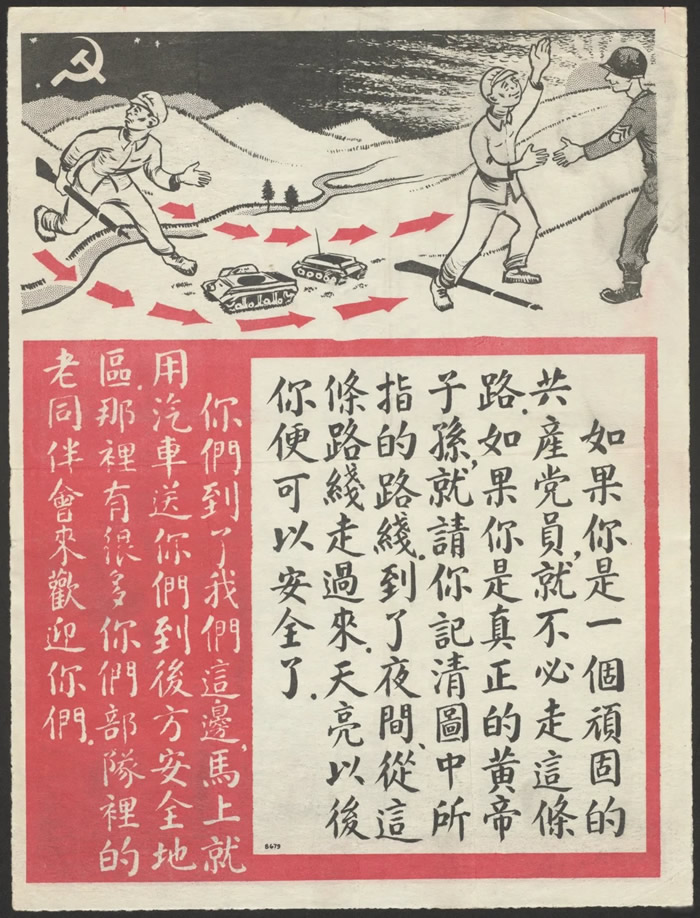 如果你是一個頑固的
共産党員，就不必走這條
路．如果你是真正的黄帝
子孫，就請你記清圖中所
指的路綫．到了夜間、從這
條路綫走過來．天亮以後
你便可以安全了．
你們到了我們這邊，馬上就
用汽車送你們到後方安全地
區．那裡有很多你們部隊裡的
老同伴會來歡迎你們．
8479